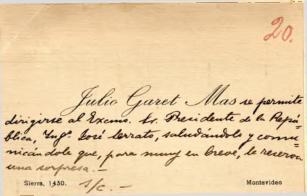 20.
Julio Garet Mas se permite
dirigirse al Excmo. Sr. Presidente de la Repú-
blica, Ingº José Serrato, saludándolo y comu-
nicándole que, para muy en breve, le reserva
una sorpresa.—
Sierra, 1430.
S/C.—
Montevideo